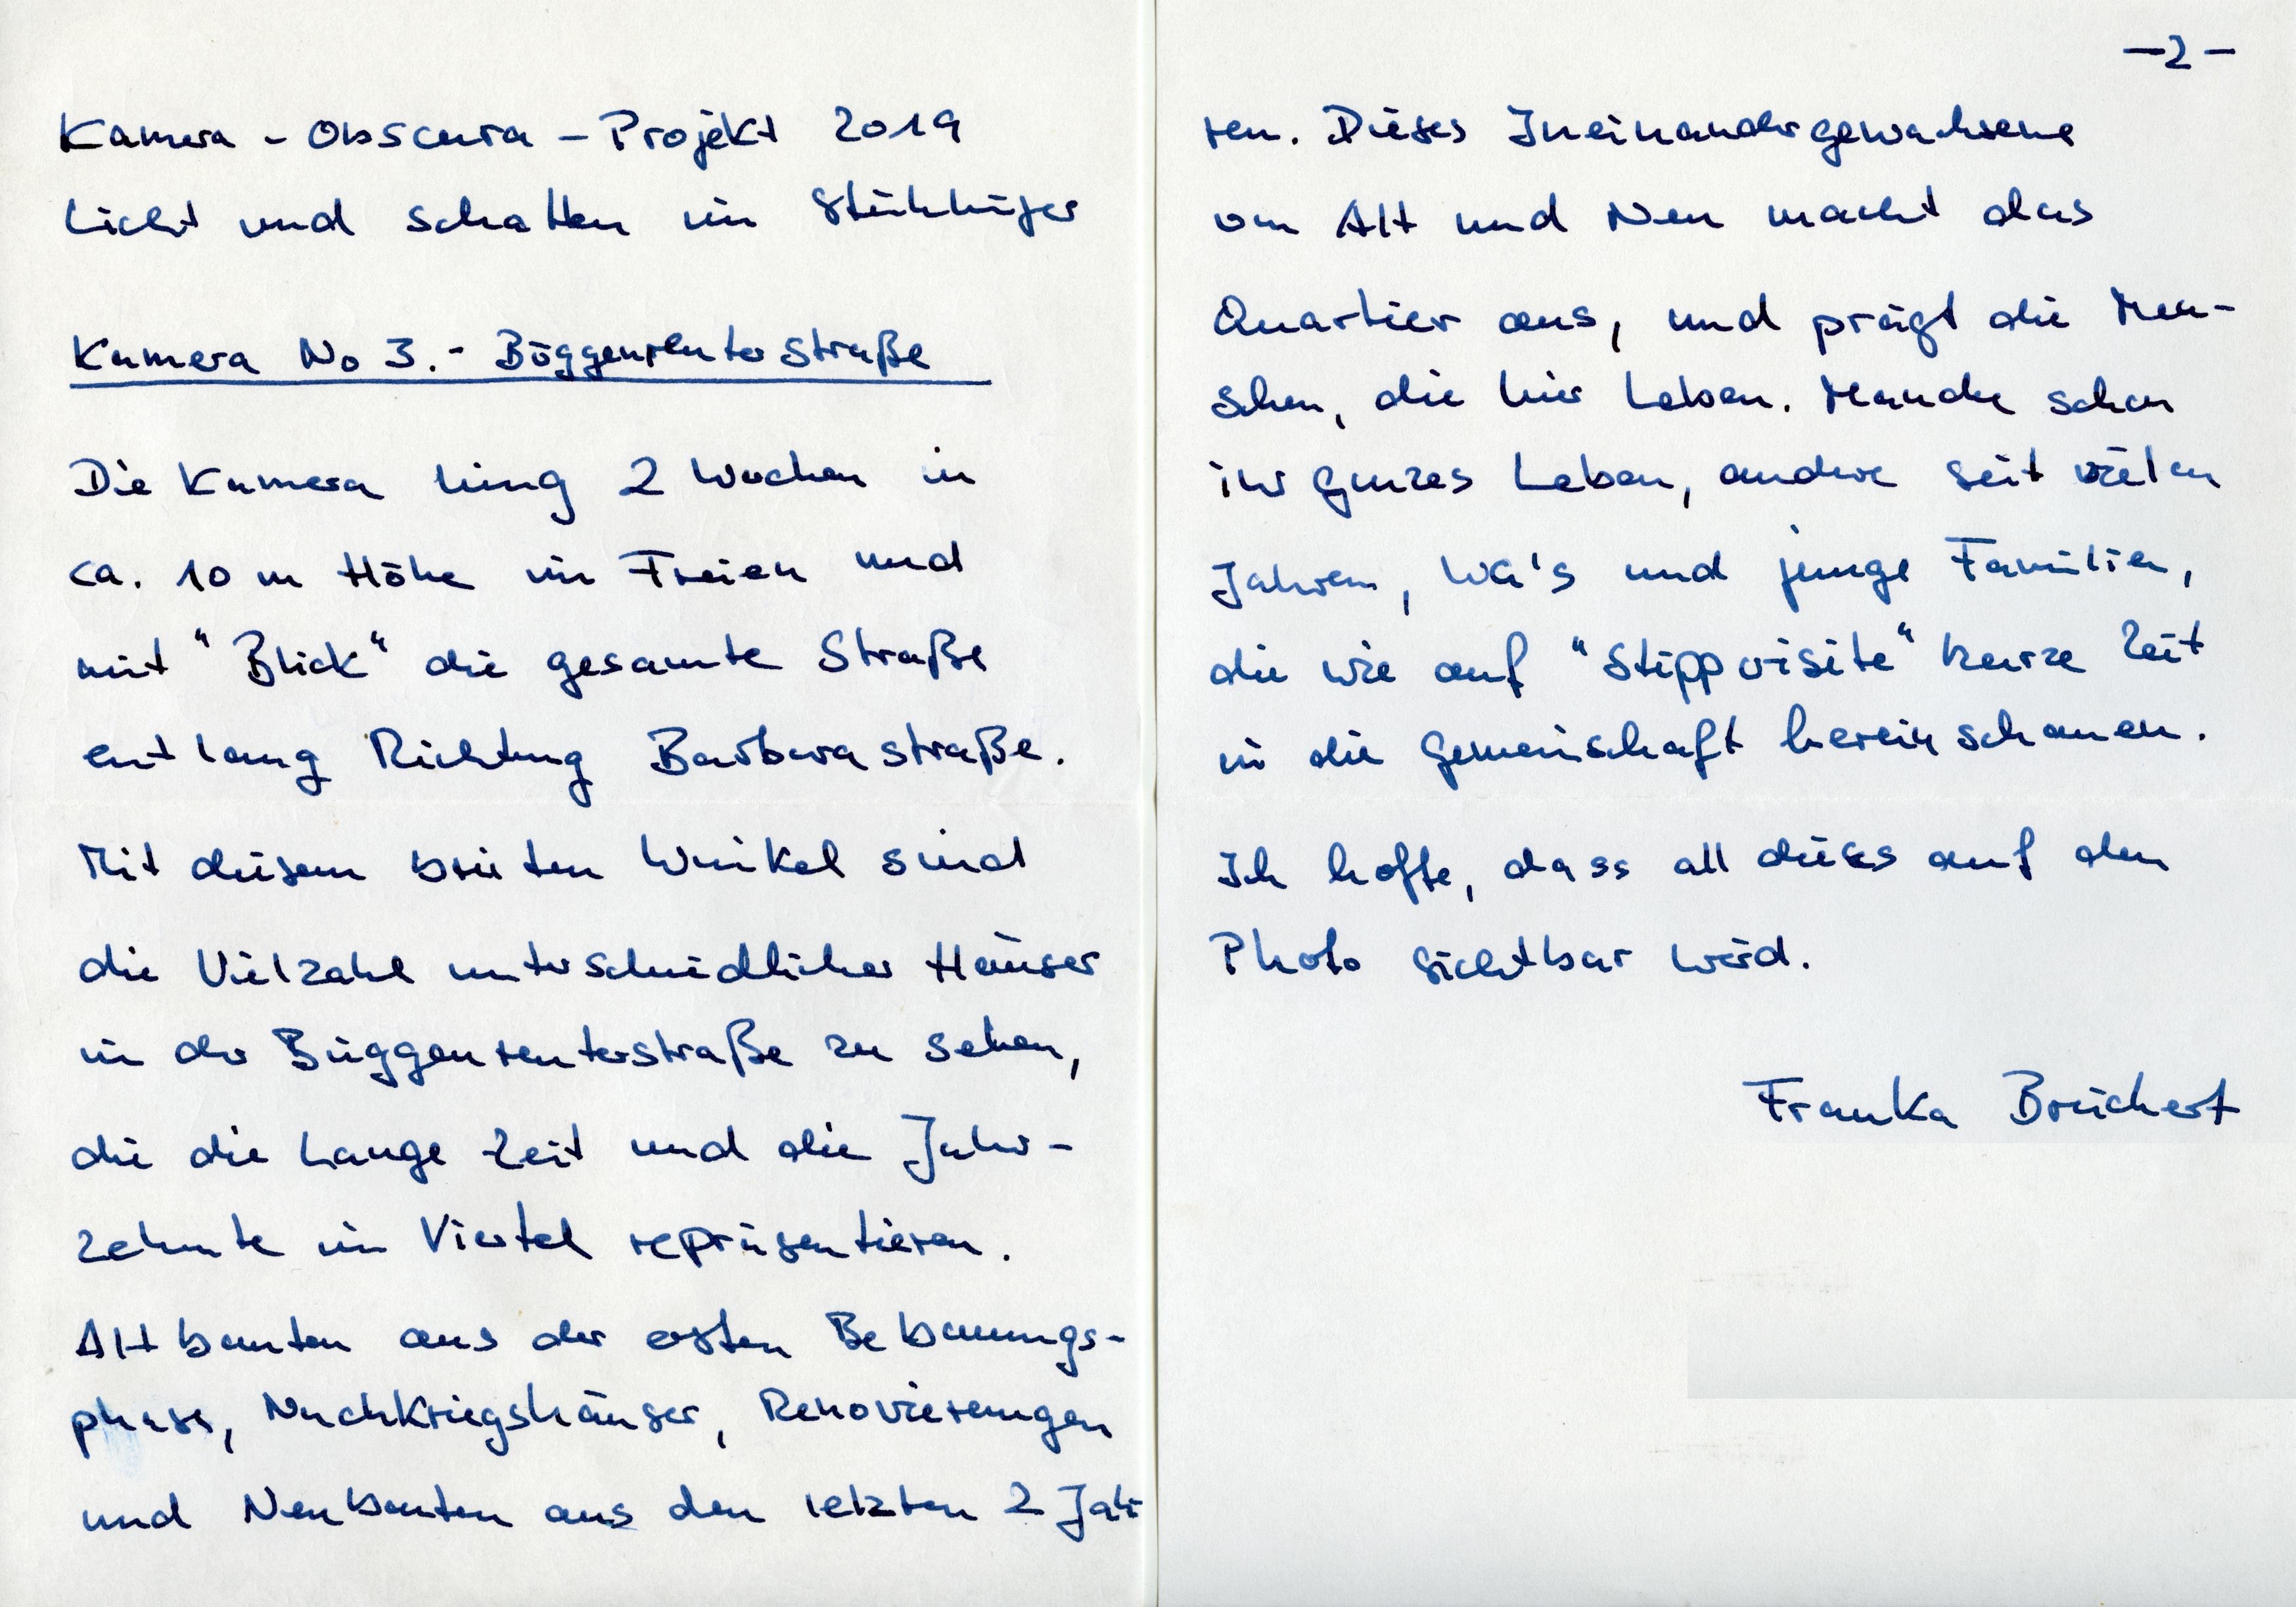 Kamera - Obscura - Projekt 2019
Licht und Schatten im Stühlinger
Kamera No 3. - Büggenreuterstraße
Die Kamera hing 2 Wochen in
ca. 10 m Höhe im Freien und
mit "Blick" die gesamte Straße
entlang Richtung Barbarastraße.
Mit diesem breiten Winkel sind
die Vielzahl unterschiedlicher Häuser
in der Büggenreuterstraße zu sehen,
die die Lange Zeit und die Jahr-
zehnte im Viertel repräsentieren.
Altbauten aus der ersten Bebauungs-
phase, Nachkriegshäuser, Renovierungen
und Neubauten aus den letzten 2 Jah-
- 2 -
ren. Dieses Ineinandergewachsene
von Alt und Neu macht das
Quartier aus, und prägt die Men-
schen, die hier Leben. Manche schon
ihr ganzes Leben, andere seit vielen
Jahren, WG's und junge Familien,
die wie auf "Stippvisite" kurze Zeit
in die Gemeinschaft hereinschauen.
Ich hoffe, dass all dieses auf dem
Photo sichtbar wird.
Franka